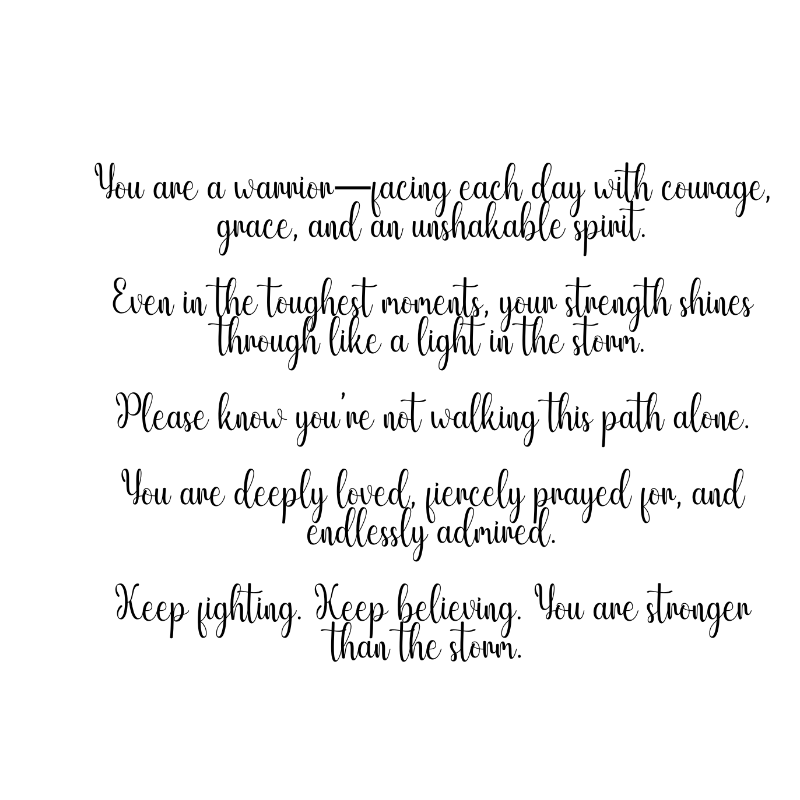 You are a warrior—facing each day with courage,
grace, and an unshakable spirit.
Even in the toughest moments, your strength shines
through like a light in the storm.
Please know you're not walking this path alone.
You are deeply loved, fiercely prayed for, and
endlessly admired.
Keep fighting. Keep believing. You are stronger
than the storm.